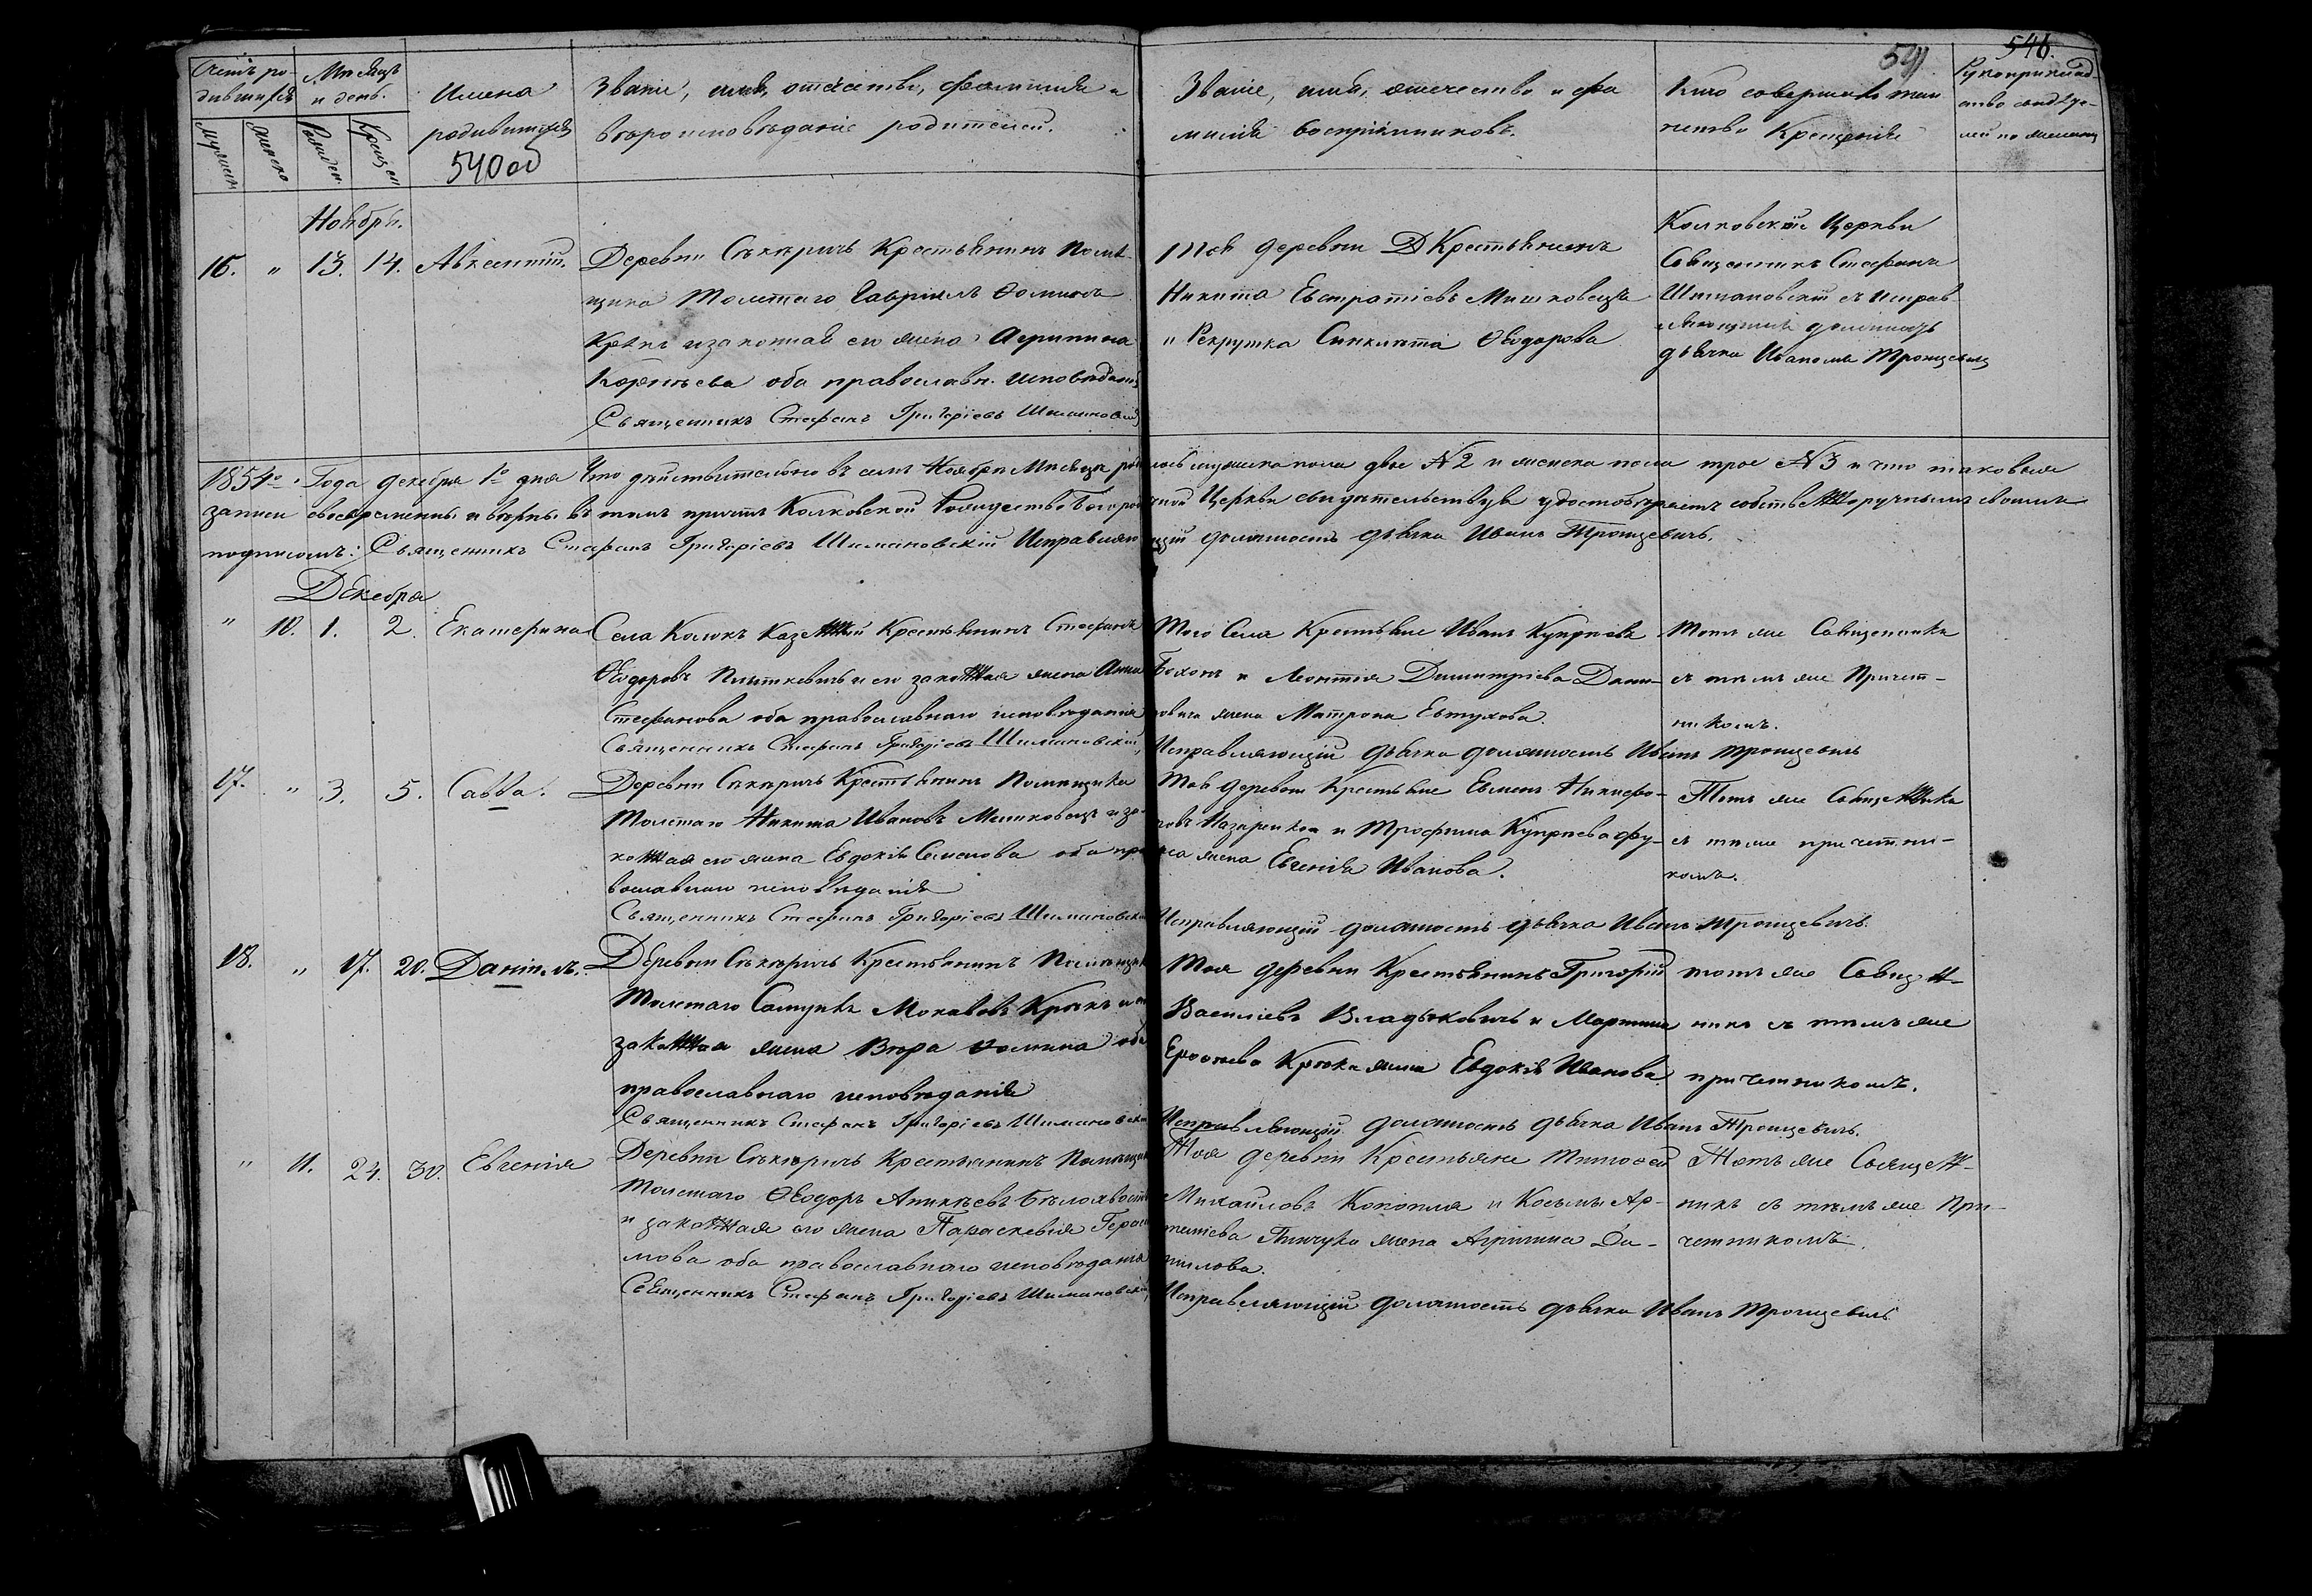 546.
541
Счетъ ро-
дившихся
Месяцъ
и день.
Имена
родившихся
540 об
Званіе, имя, отчество, фамилія и
вероисповѣданіе родителей.
Званіе, имя, отечество и фа
милія воспріемниковъ.
Кто совершалъ таи
нство Крещенія
Рукоприклад
ство свидѣте-
лей по желанію
Мужеска
Женска
Рожден.
Крещен
Ноября.
16. " 13. 14. Авксентій.
Деревни Секиричъ Крестьянинъ Помѣ-
щика Толстаго Гавріилъ Ѳоминъ
Крукъ и законная его жена Агрипина
Корнѣева оба православн. исповѣданія
Священникъ Стефанъ Григоріевъ Шимановскій
Той деревни Крестьянинъ
Никита Евстратіевъ Мишковецъ
и Рекрутка Синклита Ѳеодорова
Колковской Церкви
Священникъ Стефанъ
Шимановскій съ исправ
ляющимъ должность
дьячка Иваномъ Тронцевичъ
1854го Года декабря 1го дня Что дѣйствительно въ семъ Ноябрѣ Мѣсяцѣ родилось мужеска пола двое №2 и женска пола трое №3 и что таковыя
записи своевременны и вѣрны въ томъ причтъ Колковской Рождество Богородичной Церкви свидѣтельствуя удостовѣряетъ собственноручнымъ своимъ
подписомъ: Священникъ Стефанъ Григоріевъ Шимановскій Исправляющій должность дьячка Иванъ Тронцевичъ.
Декабря
" 10. 1. 2. Екатерина
Села Колокъ Казенный Крестьянинъ Стефанъ
Ѳеодоровъ и его законная жена Анна
Стефанова оба православнаго исповѣданія
Священникъ Стефанъ Григоріевъ Шимановскій,
Того Села Крестьяне Иванъ Купріевъ
Боханъ и Леонтія Димитріева Дани-
ловича жена Матрона Евтухова.
Исправляющій дьячка должность Иванъ Тронцевичъ
Тотъ же Священникъ
съ тѣмъ же Причет-
никомъ.
17. " 3. 5. Савва.
Деревни Секиричъ Крестьянинъ Помѣщика
Толстаго Никита Ивановъ Мишковецъ и за-
конная его жена Евдокія Семенова оба пра
вославнаго исповѣданія
Священникъ Стефанъ Григоріевъ Шимановскій
Той деревни Крестьяне Евменъ Никифо-
ровъ Назарчукъ и Трофима Купріева
жена Евгенія Иванова.
Исправляющій должность дьячка Иванъ Тронцевичъ.
Тотъ же Священникъ
съ тѣмже причетни-
комъ.
18. " 17. 20. Даніилъ.
Деревни Секиричъ Крестьянинъ Помѣщика
Толстаго Самуилъ Крукъ и его
законная жена Вѣра Ѳомина оба
православнаго исповѣданія
Священникъ Стефанъ Григоріевъ Шимановскій
Тоя деревни Крестьянинъ Григорій
Василіевъ Владыковичъ и Мартина
Крука жена Евдокія Иванова
Исправляющій должность дьячка Иванъ Тронцевичъ.
тотъ же Священ-
никъ съ тѣмъ же
причетникомъ.
" 11. 24. 30. Евгенія
Деревни Секиричъ Крестьянинъ Помѣщика
Толстаго Ѳеодоръ Аникѣевъ Бѣлохвостъ
и законная его жена Параскевія Гераси
мова оба православнаго исповѣданія
Священникъ Стефанъ Григоріевъ Шимановскій,
Тоя деревни Крестьяне Тимофей
Михайловъ Конопля и Косьмы Ар-
теміева Пинчука жена Агрипина Да-
нилова.
Исправляющій должность дьячка Иванъ Тронцевичъ
Тотъ же Священ-
никъ съ тѣмъ же При-
четникомъ.